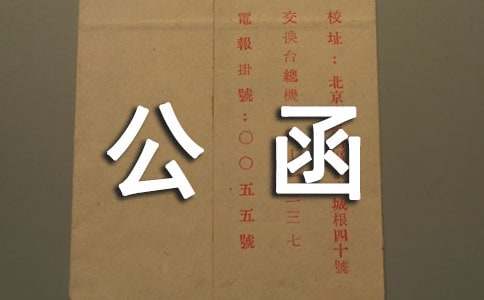 校址：北京城根四十號
交換台總機二三七
電報掛號：〇〇五五號
公函